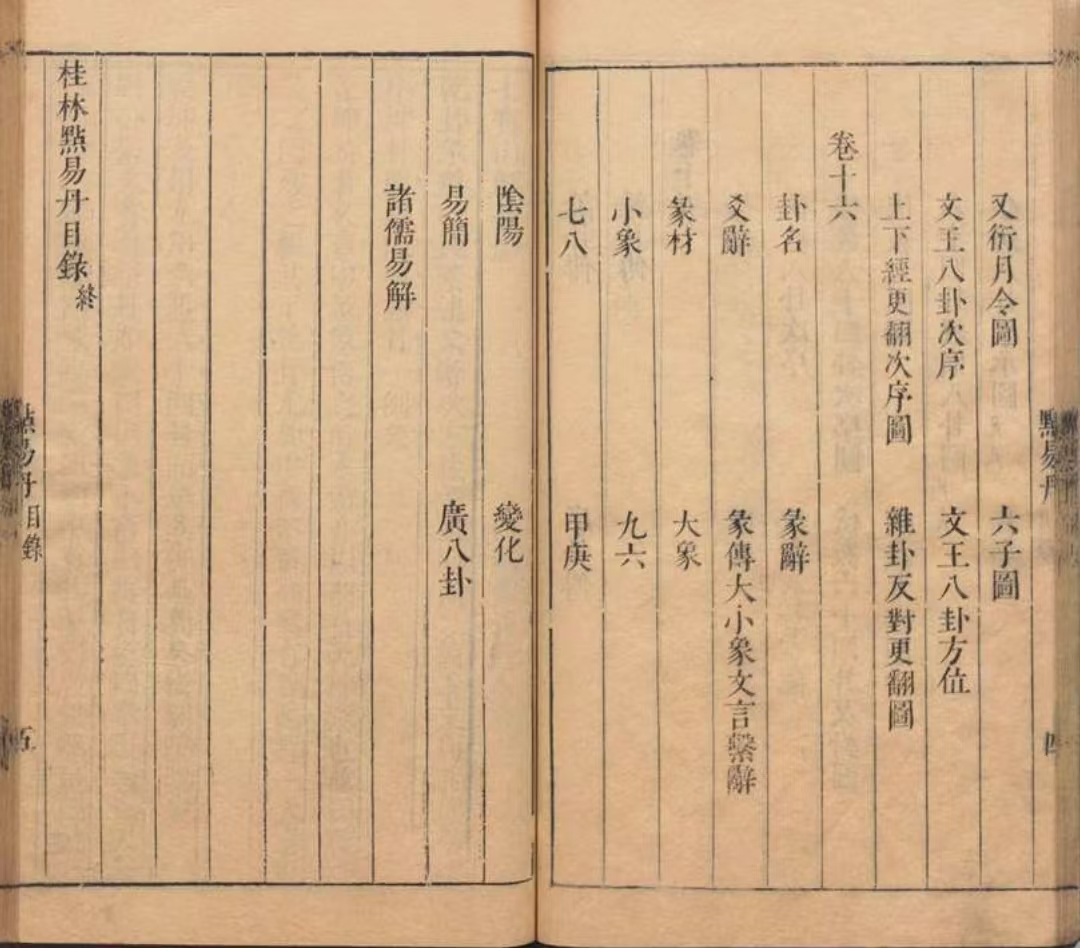 點易丹
四
又衍月令圖 六子圖
文王八卦次序 文王八卦方位
上下經更翻次序圖 雜卦反對更翻圖
卷十六
卦名 彖辭
爻辭 彖傳大小象文言繫辭
彖材 大象
小象 九六
七八 甲庚
陰陽 變化
易簡 廣八卦
諸儒易解
桂林點易丹目錄終
點易丹 目錄
五